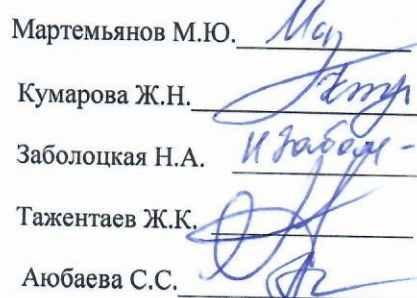 Мартемьянов М.Ю.
Кумарова Ж.Н.
Заболоцкая Н.А.
Тажентаев Ж.К.
Аюбаева С.С.